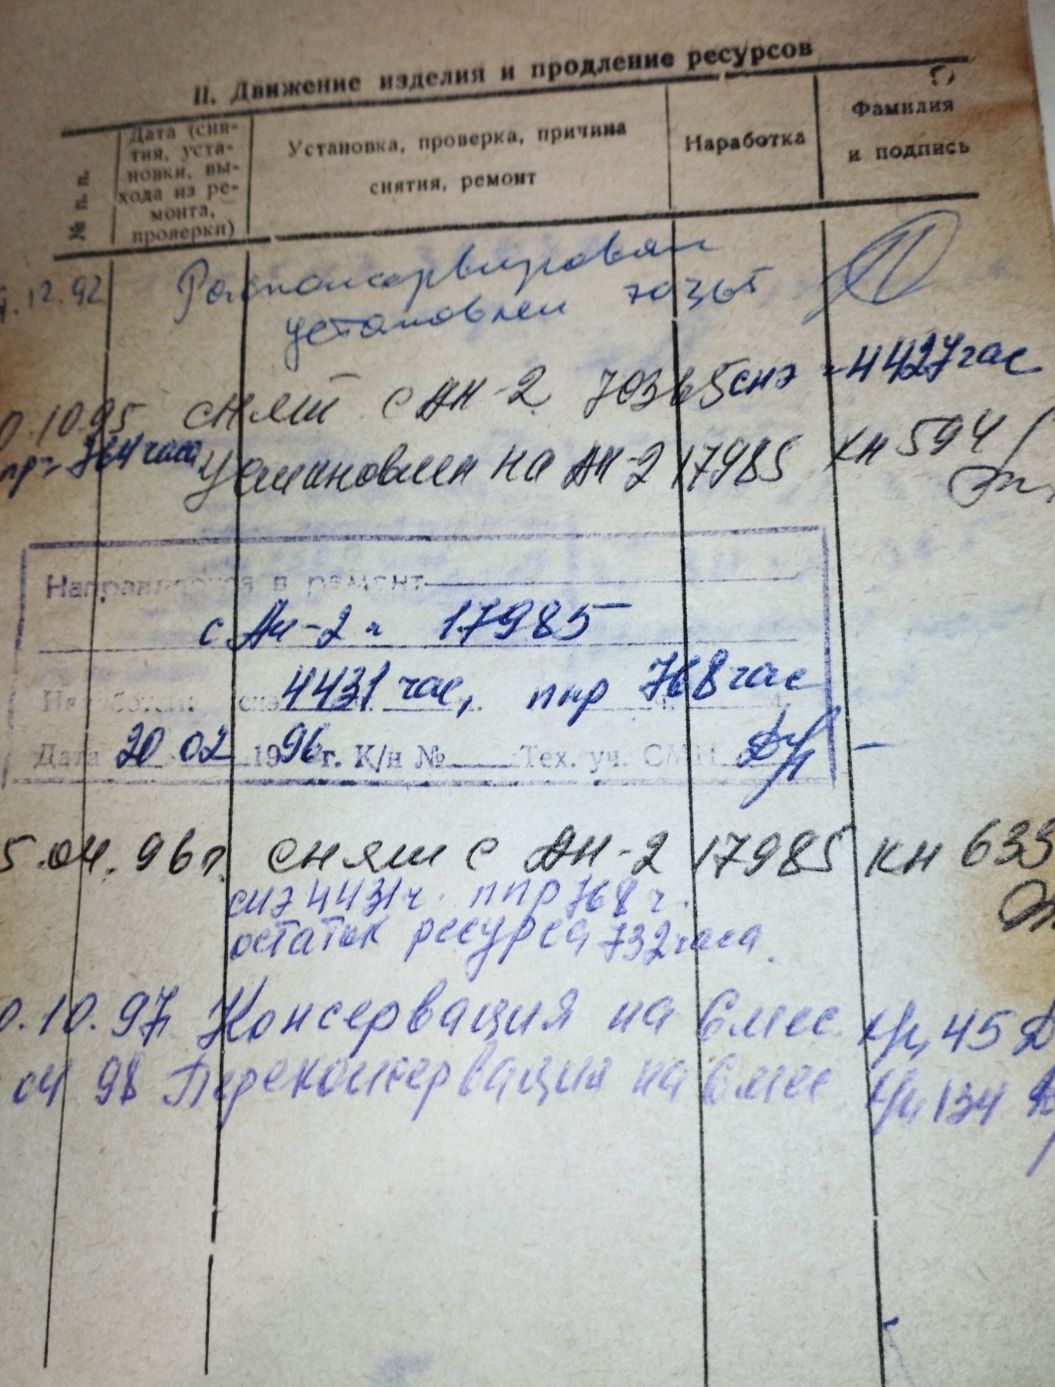 II. Движение изделия и продление ресурсов
№ п. п.
Дата (сня-
тия, уста-
новки, вы-
хода из ре-
монта,
проверки)
Установка, проверка, причина
снятия, ремонт
Наработка
Фамилия
и подпись
.12.92 Расконсервирован
установлен 70365
0.10.95 снят с АН-2 70365 снэ - 4427 час
ппр= 764 часа Установлен на АН-2 17985 кн 594
Направляется в ремонт
с Ан-2 17985
Наработка: снэ 4431 час, ппр 768 час
Дата 20 02 1996 г. К/н № Тех. уч.
5.04.96г. снят с АН-2 17985 кн 633
снэ 4431ч. ппр 768 ч.
остаток ресурса 732 часа.
0.10.97 Консервация на 6 мес 45
04 98 Переконсервация на 6 мес 134